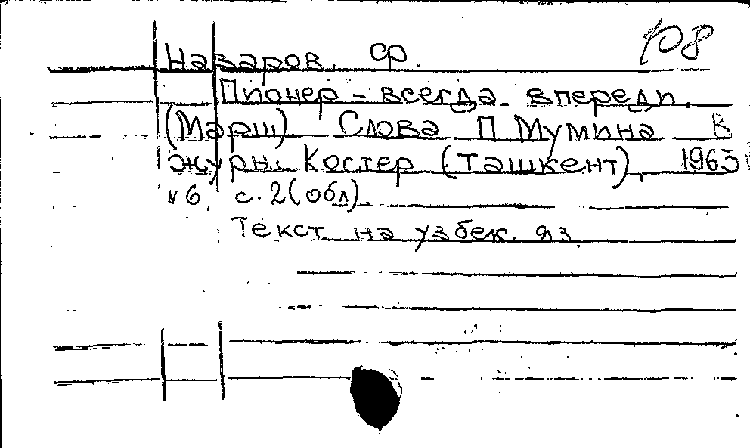 108
Назаров. Ф.
Пионер - всегда впереди.
(Марш) Слова П. Мумина В
журн. Костер (Ташкент), 1963
N 6, с. 2 (обл).
Текст на узбек. яз.